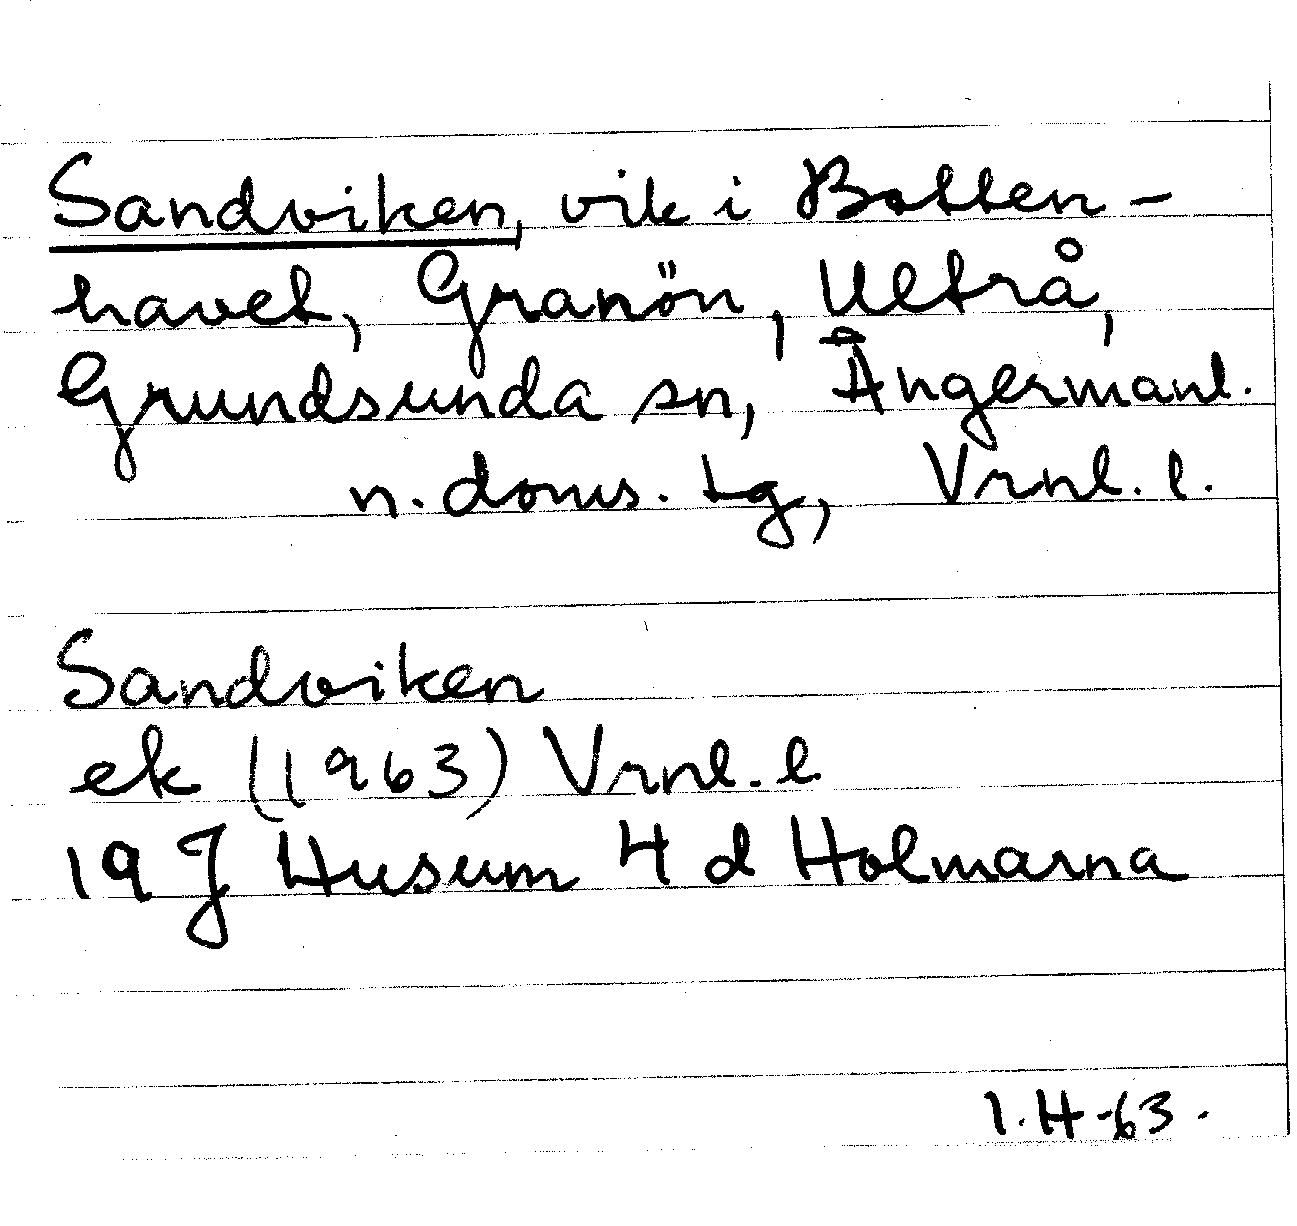 Sandviken, vik i Botten-
havet, Granön, Ultrå,
Grundsunda sn, Ångermanl.
n. doms. tg, Vrnl. l.
Sandviken
ek (1963) Vrnl. l
19 J Husum 4 d Holmarna
I.H-63.